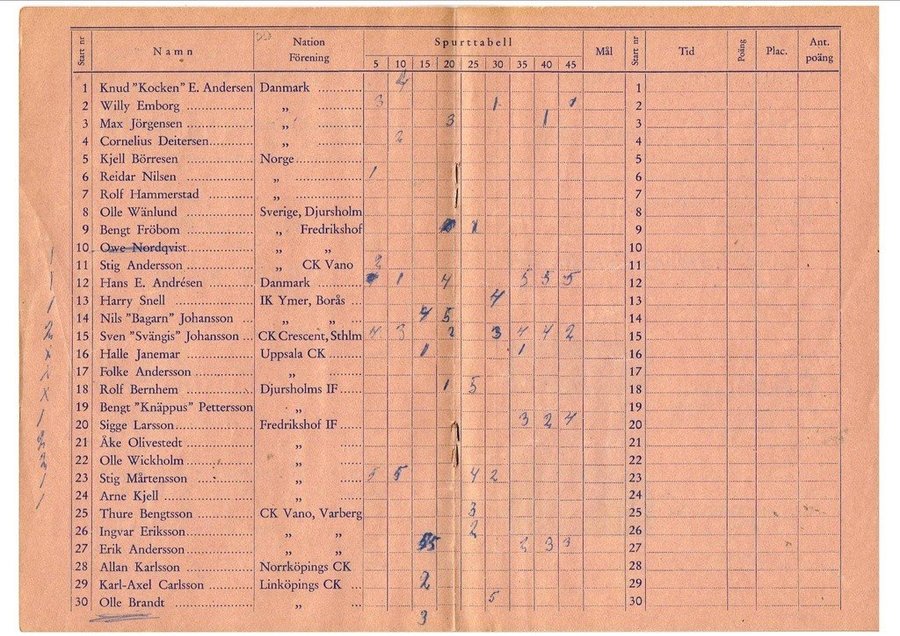 Start nr Namn Nation Förening Spurttabell Mål Start nr Tid Poäng Plac. Ant. poäng
5 10 15 20 25 30 35 40 45
1 Knud "Kocken" E. Andersen Danmark 4 1
2 Willy Emborg „ 3 1 1 2
3 Max Jörgensen „ 3 1 3
4 Cornelius Deitersen „ 2 4
5 Kjell Börresen Norge 5
6 Reidar Nilsen „ 1 6
7 Rolf Hammerstad „ 7
8 Olle Wänlund Sverige, Djursholm 8
9 Bengt Fröbom „ Fredrikshof 1 9
10 Owe Nordqvist „ „ 10
11 Stig Andersson „ CK Vano 2 11
12 Hans E. Andrésen Danmark 1 4 5 5 5 12
13 Harry Snell IK Ymer, Borås 4 13
14 Nils "Bagarn" Johansson „ „ 4 5 14
15 Sven "Svängis" Johansson CK Crescent, Sthlm 4 3 2 3 4 4 2 15
16 Halle Janemar Uppsala CK 1 1 16
17 Folke Andersson „ 17
18 Rolf Bernhem Djursholms IF 1 5 18
19 Bengt "Knäppus" Pettersson „ 19
20 Sigge Larsson Fredrikshof IF 3 2 4 20
21 Åke Olivestedt „ 21
22 Olle Wickholm „ 22
23 Stig Mårtensson „ 5 5 4 2 23
24 Arne Kjell „ 24
25 Thure Bengtsson CK Vano, Varberg 3 25
26 Ingvar Eriksson „ „ 2 26
27 Erik Andersson „ „ 5 2 3 3 27
28 Allan Karlsson Norrköpings CK 28
29 Karl-Axel Carlsson Linköpings CK 2 29
30 Olle Brandt „ 5 30
3